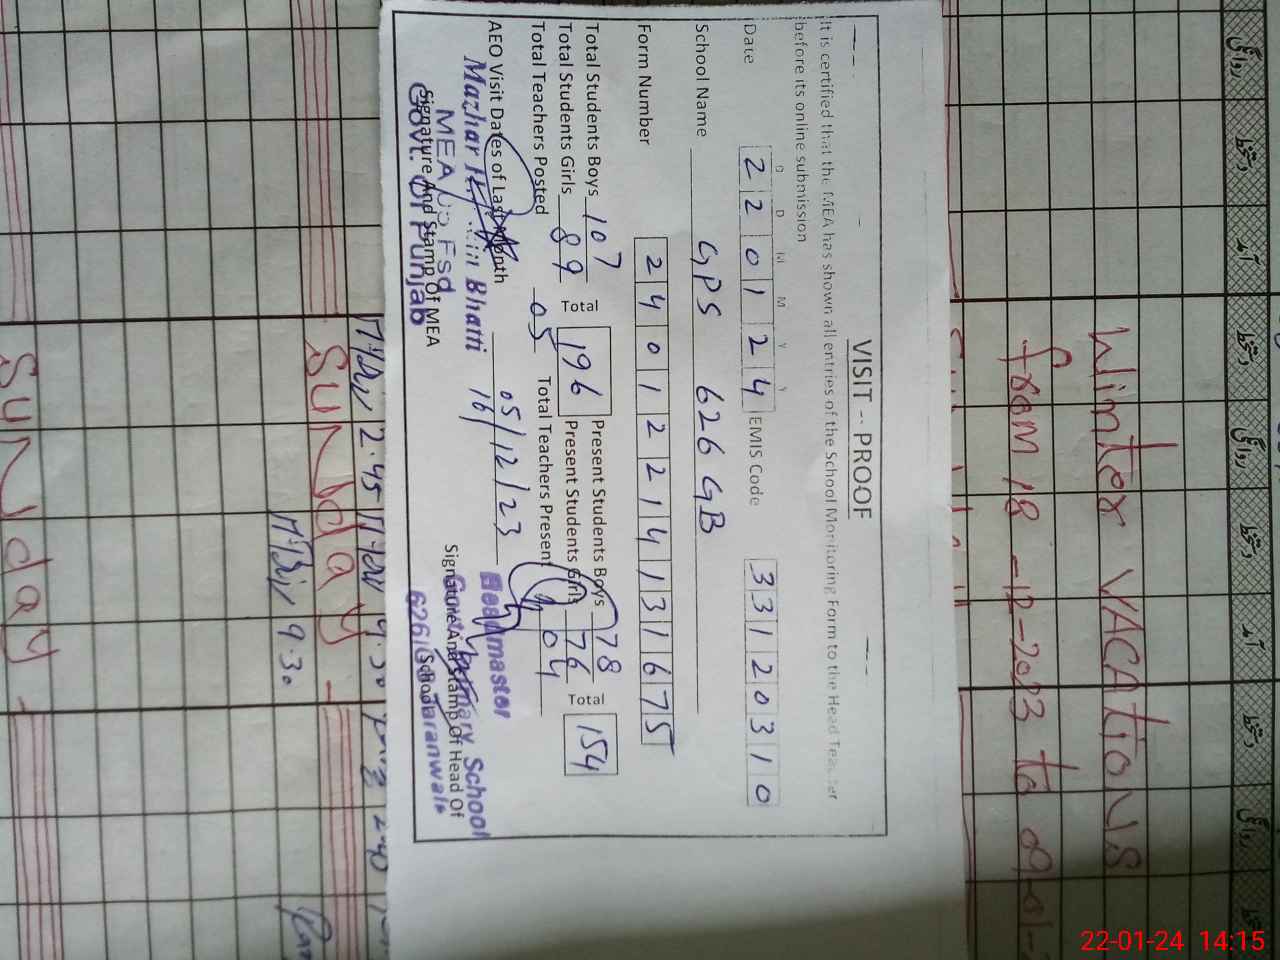 Winter VACAtioNS
from 18-12-2023 to 09-01-
VISIT -- PROOF
It is certified that the MEA has shown all entries of the School Monitoring Form to the Head Teacher
before its online submission
D D M M Y Y
Date 2 2 0 1 2 4 EMIS Code 3 3 1 2 0 3 1 0
School Name GPS 626 GB
Form Number 2 4 0 1 2 2 1 4 1 3 1 6 7 5
Total Students Boys 107 Present Students Boys 78
Total 196 Total 154
Total Students Girls 89 Present Students Girls 76
Total Teachers Posted 05 Total Teachers Present 04
AEO Visit Dates of Last Month 05/12/23
16/
Mazhar Bhatti
MEA Fsd
Govt. Of Punjab
Signature And Stamp Of MEA
Headmaster
Primary School
626 Jaranwala
Signature And Stamp Of Head Of
School
2.45
SUNday
9.30
SUNday
روانگی
دستخط
آمد
دستخط
روانگی
دستخط
آمد
دستخط
روانگی
22-01-24 14:15